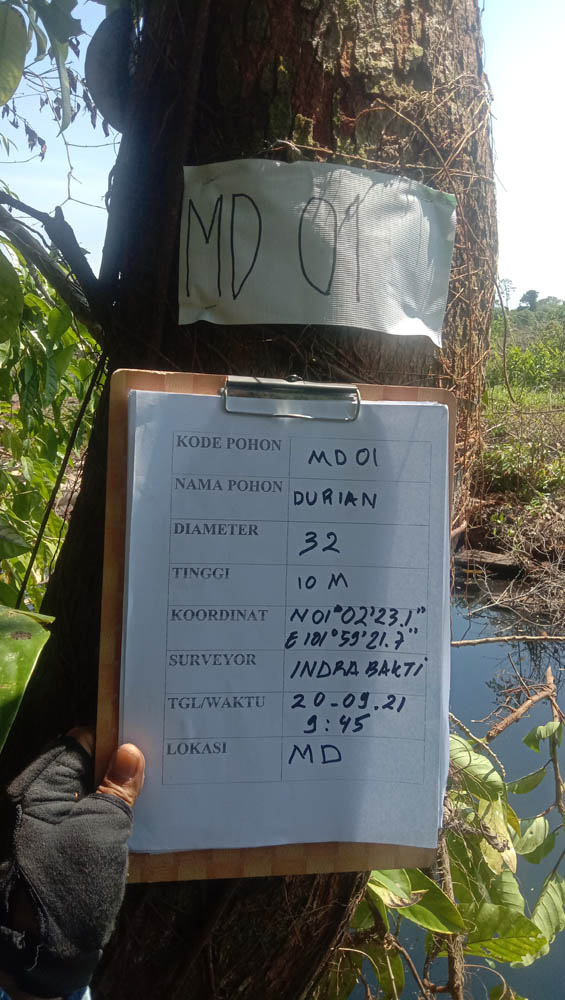 MD 01
KODE POHON MD 01
NAMA POHON DURIAN
DIAMETER 32
TINGGI 10 M
KOORDINAT N 01°02'23.1"
E 101°59'21.7"
SURVEYOR INDRA BAKTI
TGL/WAKTU 20-09.21
9:45
LOKASI MD